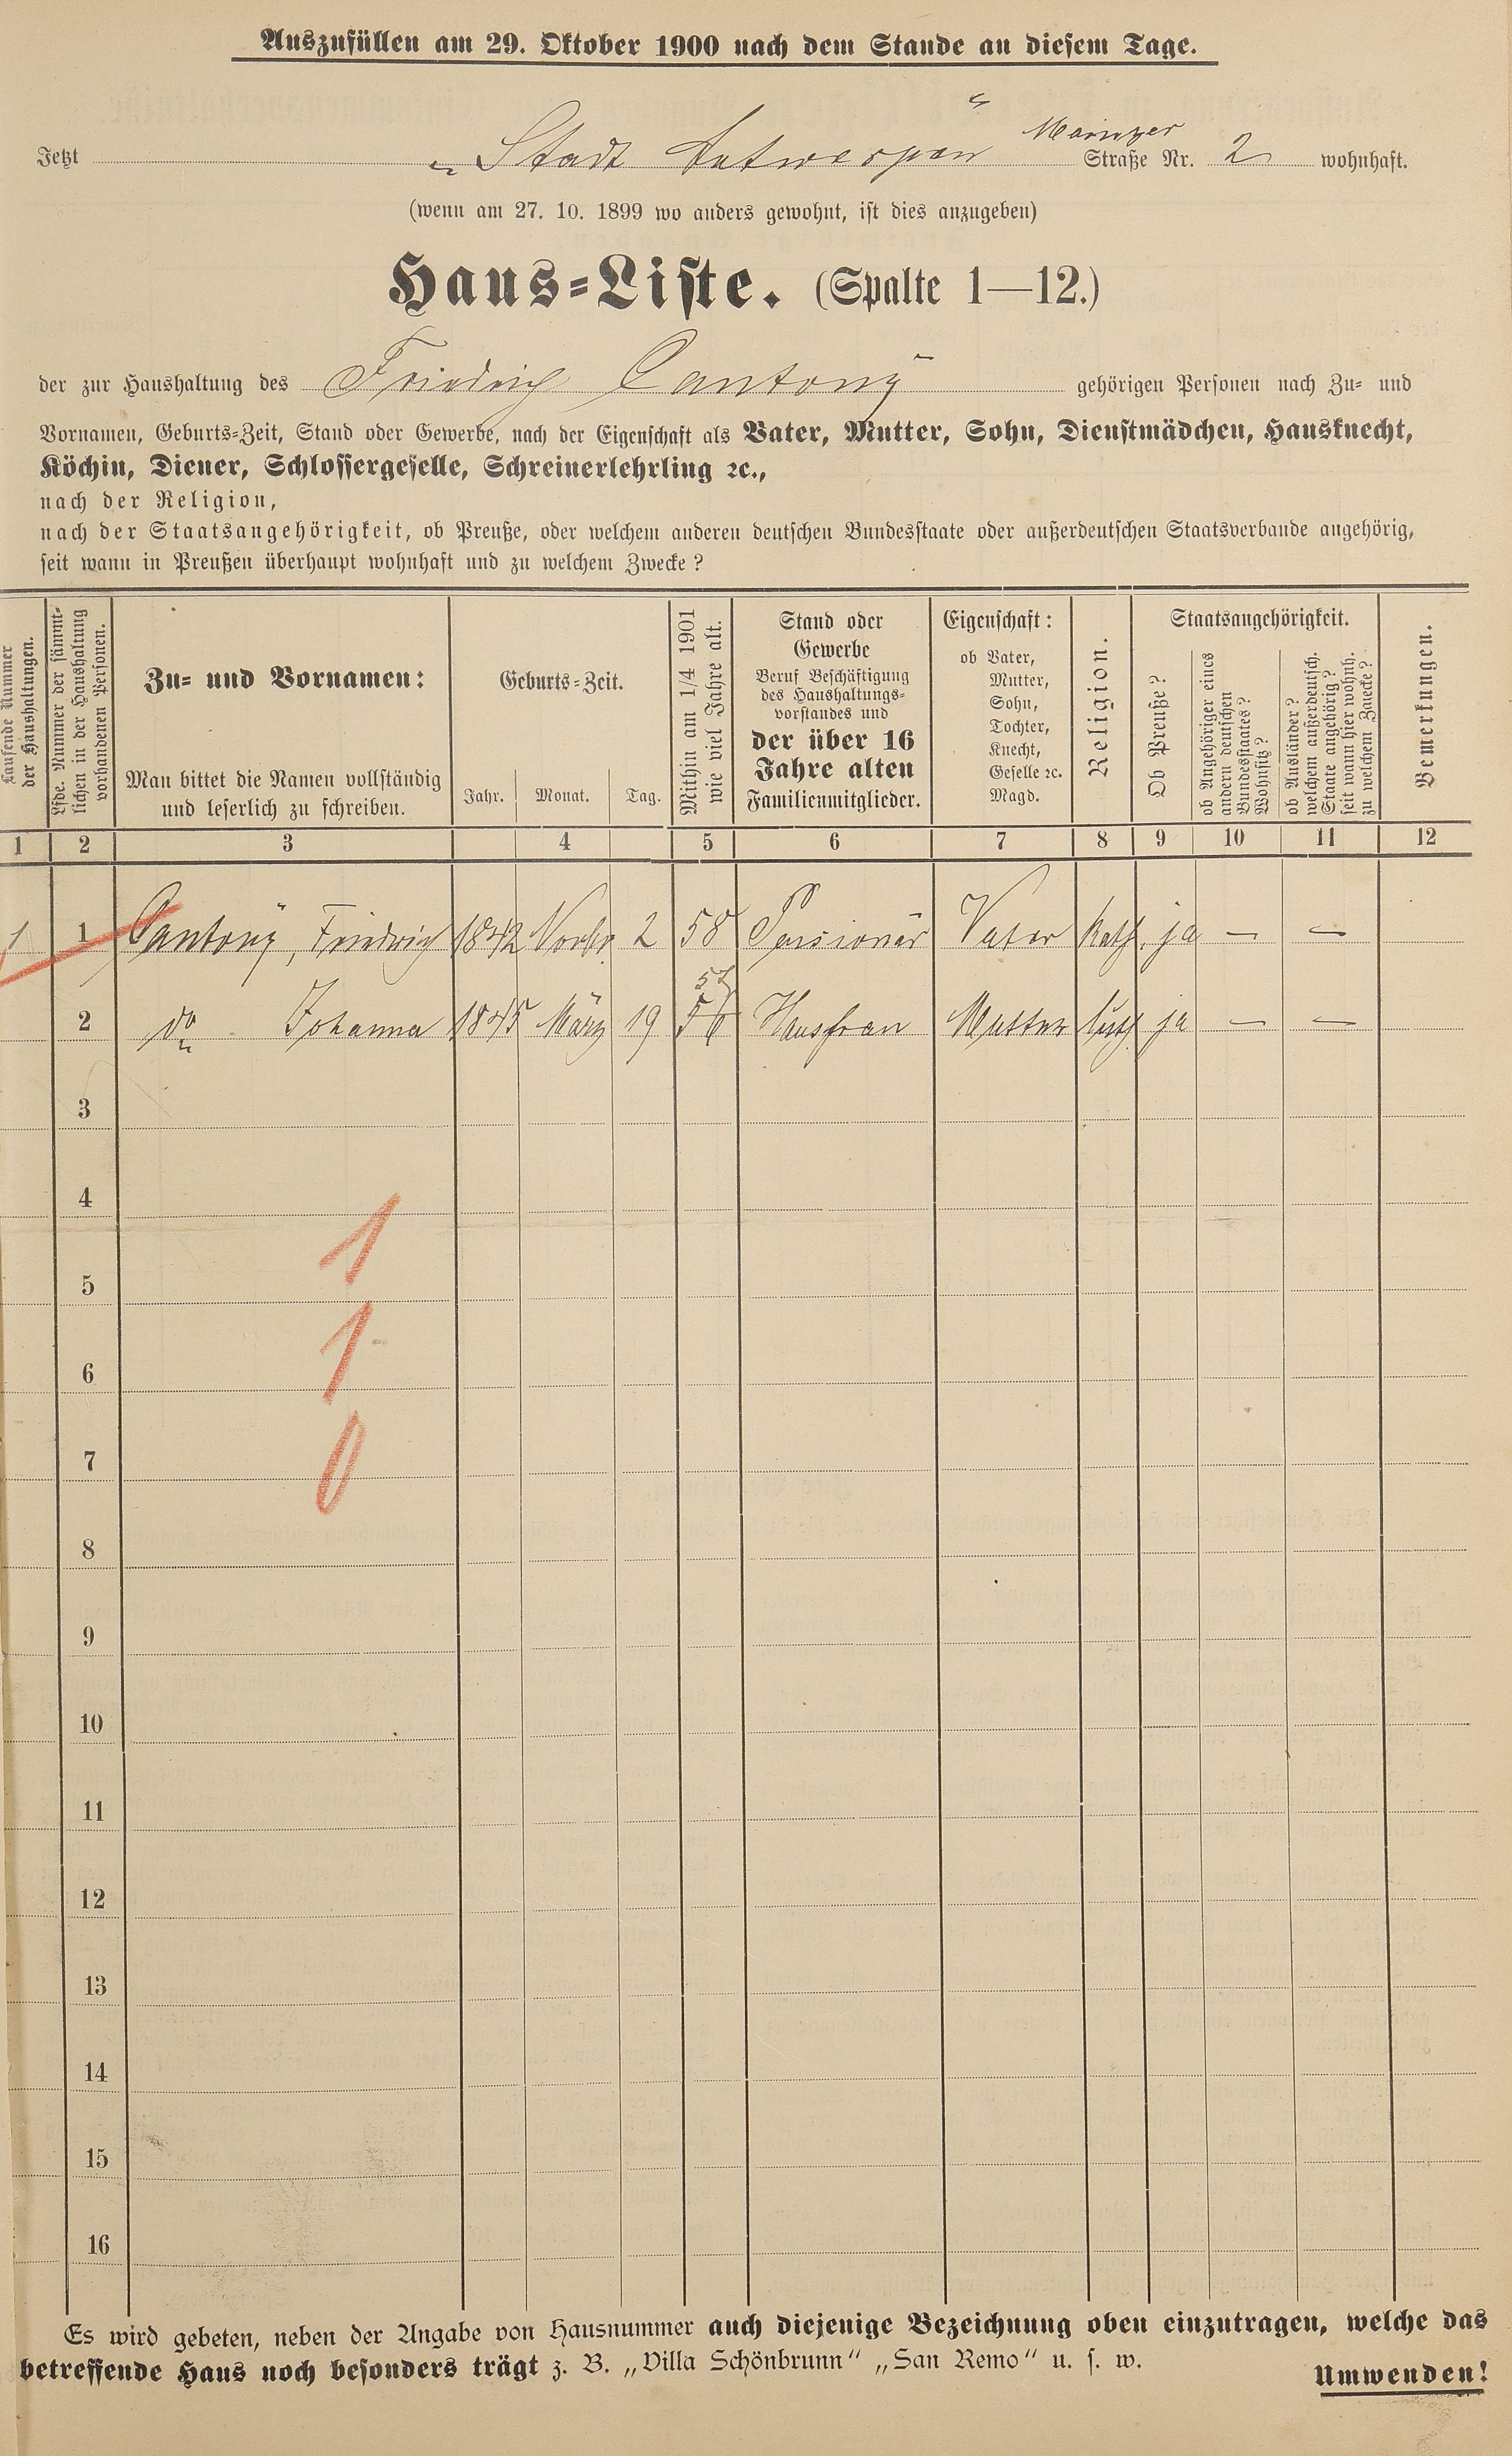 Auszufüllen am 29. Oktober 1900 nach dem Stande an diesem Tage.
Jetzt „Stadt Antwerpen“ Mainzer Straße Nr. 2 wohnhaft.
(wenn am 27. 10. 1899 wo anders gewohnt, ist dies anzugeben)
Haus-Liste. (Spalte 1—12.)
der zur Haushaltung des Friedrich Cantony gehörigen Personen nach Zu- und
Vornamen, Geburts-Zeit, Stand oder Gewerbe, nach der Eigenschaft als Vater, Mutter, Sohn, Dienstmädchen, Hausknecht,
Köchin, Diener, Schlossergeselle, Schreinerlehrling ꝛc.,
nach der Religion,
nach der Staatsangehörigkeit, ob Preuße, oder welchem anderen deutschen Bundesstaate oder außerdeutschen Staatsverbande angehörig,
seit wann in Preußen überhaupt wohnhaft und zu welchem Zwecke?
Laufende Nummer
der Haushaltungen.
Lfde. Nummer der sämmt-
lichen in der Haushaltung
vorhandenen Personen.
Zu- und Vornamen:
Man bittet die Namen vollständig
und leserlich zu schreiben.
Geburts-Zeit.
Jahr. Monat. Tag.
Mithin am 1/4 1901
wie viel Jahre alt.
Stand oder
Gewerbe
Beruf Beschäftigung
des Haushaltungs-
vorstandes und
der über 16
Jahre alten
Familienmitglieder.
Eigenschaft:
ob Vater,
Mutter,
Sohn,
Tochter,
Knecht,
Geselle ꝛc.
Magd.
Religion.
Staatsangehörigkeit.
Ob Preuße?
ob Angehöriger eines
andern deutschen
Bundesstaates?
Wohnsitz?
ob Ausländer?
welchem außerdeutsch.
Staate angehörig?
seit wann hier wohnh.
zu welchem Zwecke?
Bemerkungen.
1 2 3 4 5 6 7 8 9 10 11 12
1 1 Cantony, Friedrich 1842 Novbr. 2 58 Pensionär Vater Kath. ja — —
2 do Johanna 1845 März 19 56 Hausfrau Mutter luth. ja — —
3
4
1
5
1
6
0
7
8
9
10
11
12
13
14
15
16
Es wird gebeten, neben der Angabe von Hausnummer auch diejenige Bezeichnung oben einzutragen, welche das
betreffende Haus noch besonders trägt z. B. „Villa Schönbrunn“ „San Remo“ u. s. w.
Umwenden!